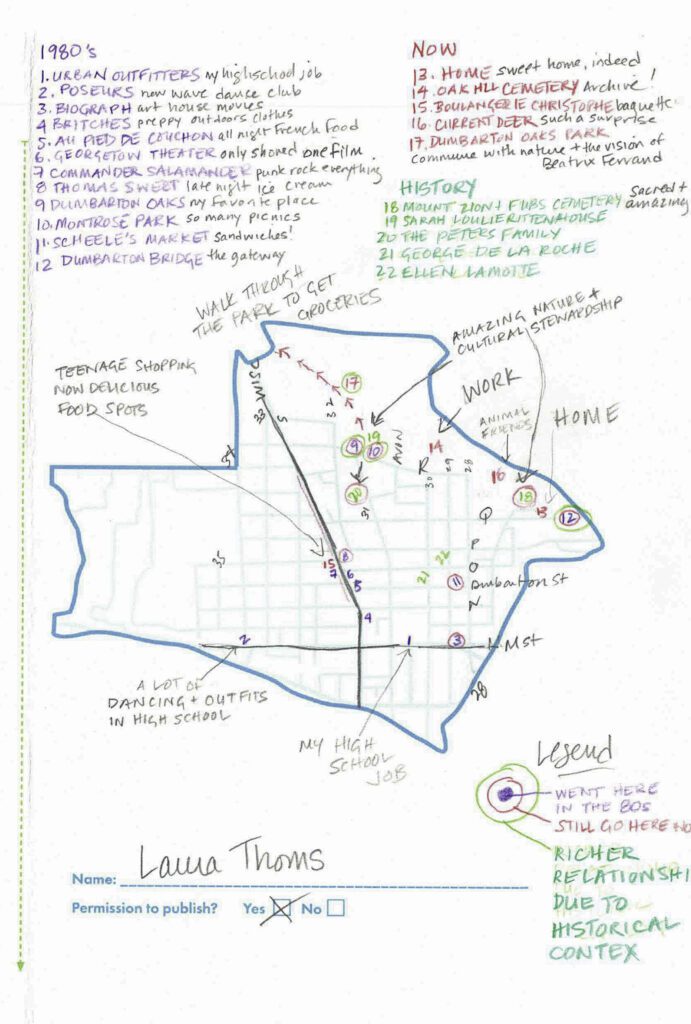 1980's
1. URBAN OUTFITTERS my highschool job
2. POSEURS new wave dance club
3. BIOGRAPH art house movies
4 BRITCHES preppy outdoors clothes
5. AU PIED DE COUCHON all night French Food
6. GEORGETOW THEATER only showed one film.
7 COMMANDER SALAMANDER punk rock everything
8 THOMAS SWEET late night ice cream
9 DUMBARTON OAKS my favorite place
10. MONTROSE PARK so many picnics
11. SCHEELE'S MARKET sandwiches!
12 DUMBARTON BRIDGE the gateway
NOW
13. HOME sweet home, indeed
14. OAK HILL CEMETERY Archive!
15. BOULANGERIE CHRISTOPHE baguette
16. CURRENT DEER such a surprise
17. DUMBARTON OAKS PARK
commune with nature + the vision of
Beatrix Ferrand
HISTORY
18 MOUNT ZION + FUBS CEMETERY sacred + amazing
19 SARAH LOULIE RITTENHOUSE
20 THE PETERS FAMILY
21 GEORGE DE LA ROCHE
22 ELLEN LAMOTTE
WALK THROUGH
THE PARK TO GET
GROCERIES
AMAZING NATURE +
CULTURAL STEWARDSHIP
TEENAGE SHOPPING
NOW DELICIOUS
FOOD SPOTS
WORK
ANIMAL
FRIENDS
HOME
WISC
17
32
33
S
19
9
10
AVON
14
R
30
29
28
16
18
13
12
20
31
Q
35
8
15
7
6
5
P
O
22
21
11
Dumbarton St
N
4
2
1
3
M St
28
A LOT OF
DANCING + OUTFITS
IN HIGH SCHOOL
MY HIGH
SCHOOL
JOB
Legend
WENT HERE
IN THE 80s
STILL GO HERE NO
RICHER
RELATIONSHI
DUE TO
HISTORICAL
CONTEX
Name: Laura Thoms
Permission to publish? Yes No